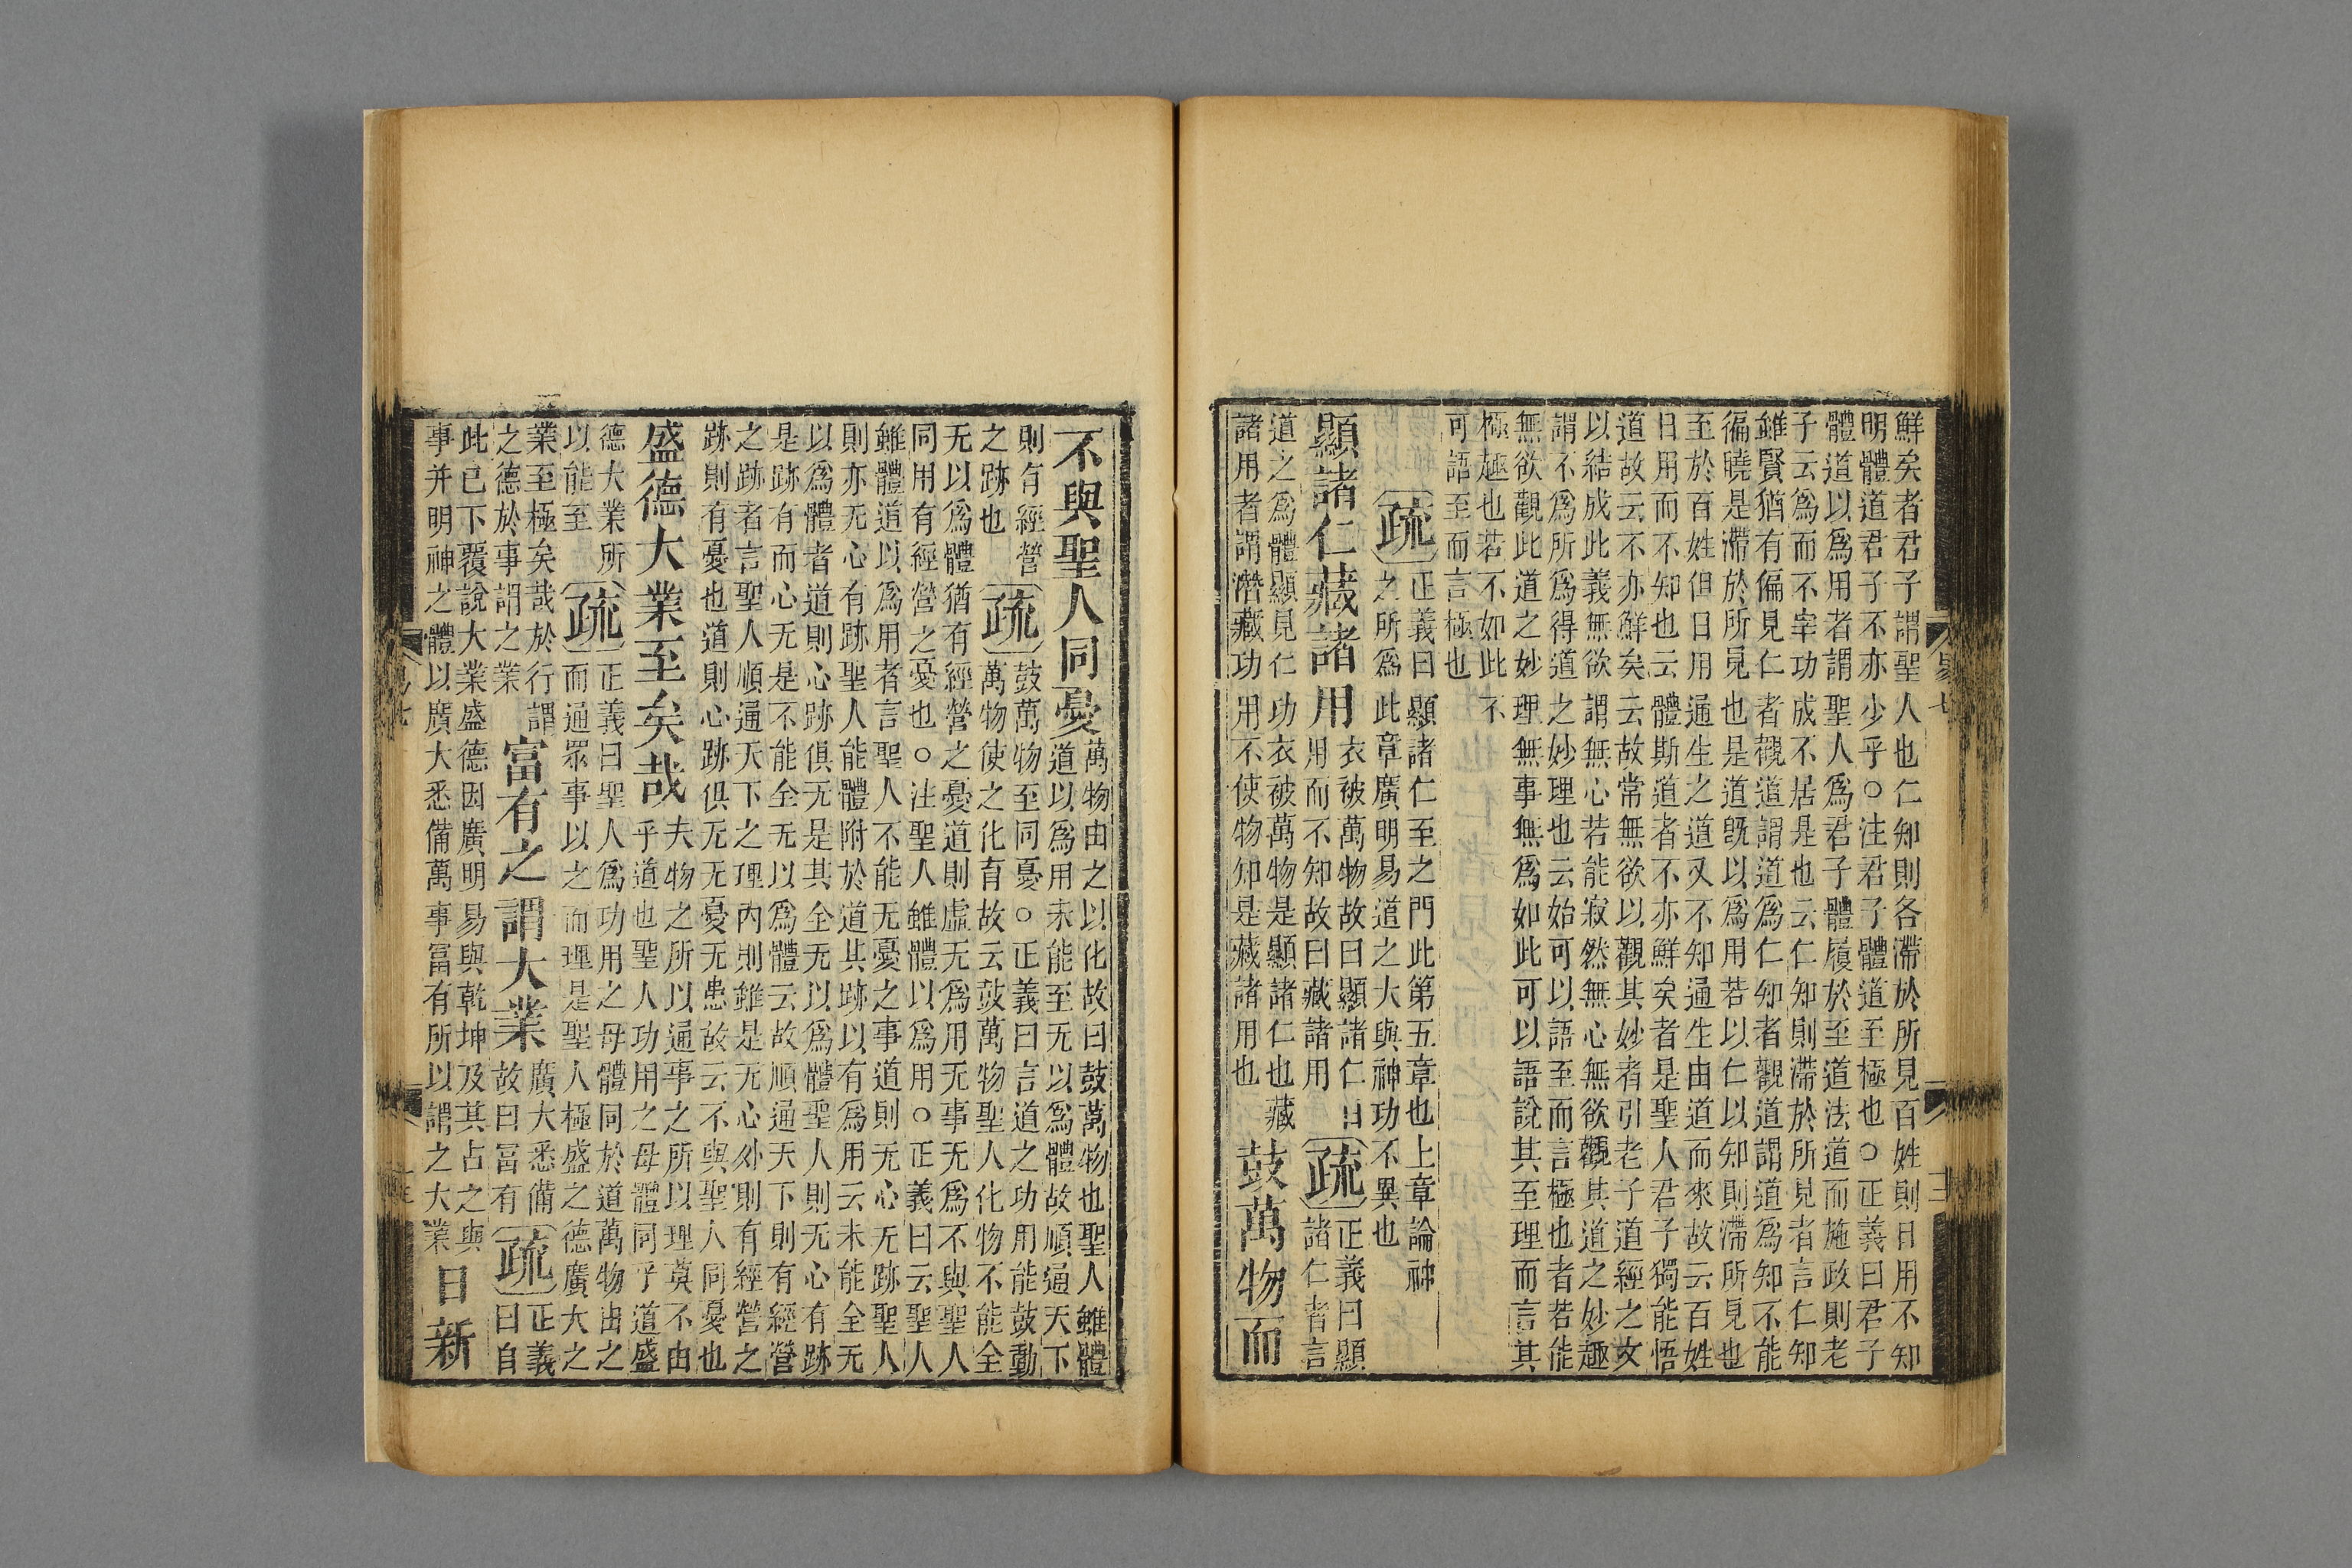 鮮矣者君子謂聖人也仁知則各滯於所見百姓則日用不知
明體道君子不亦少乎○注君子體道至極也○正義曰君子
體道以爲用者謂聖人爲君子體履於至道法道而施政則老
子云爲而不宰功成不居是也云仁知則滯於所見者言仁知
雖賢猶有偏見仁者觀道謂道爲仁知者觀道謂道爲知不能
徧曉是滯於所見也是道旣以爲用若以仁以知則滯所見也
至於百姓但日用通生之道又不知通生由道而來故云百姓
日用而不知也云體斯道者不亦鮮矣者是聖人君子獨能悟
道故云不亦鮮矣云故常無欲以觀其妙者引老子道經之文
以結成此義無欲謂無心若能寂然無心無欲觀其道之妙趣
謂不爲所爲得道之妙理也云始可以語至而言極也者若能
無欲觀此道之妙理無事無爲如此可以語說其至理而言其
極趣也若不如此不
可語至而言極也
疏
正義曰顯諸仁至之門此第五章也上章論神
之所爲此章廣明易道之大與神功不異也
顯諸仁藏諸用
衣被萬物故曰顯諸仁日
用而不知故曰藏諸用
疏
正義曰顯
諸仁者言
道之爲體顯見仁功衣被萬物是顯諸仁也藏
諸用者謂潛藏功用不使物知是藏諸用也
鼓萬物而
易七
不與聖人同憂
萬物由之以化故曰鼓萬物也聖人雖體
道以爲用未能至无以爲體故順通天下
則有經營
之跡也
疏
鼓萬物至同憂○正義曰言道之功用能鼓動
萬物使之化育故云鼓萬物聖人化物不能全
无以爲體猶有經營之憂道則虛无爲用无事无爲不與聖人
同用有經營之憂也○注聖人雖體以爲用○正義曰云聖人
雖體道以爲用者言聖人不能无憂之事道則无心无跡聖人
則亦无心有跡聖人能體附於道其跡以有爲用云未能全无
以爲體者道則心跡俱无是其全无以爲體聖人則无心有跡
是跡有而心无是不能全无以爲體云故順通天下則有經營
之跡者言聖人順通天下之理內則雖是无心外則有經營之
跡則有憂也道則心跡俱无无憂无患故云不與聖人同憂也
盛德大業至矣哉
夫物之所以通事之所以理莫不由
乎道也聖人功用之母體同乎道盛
德大業所
以能至
疏
正義曰聖人爲功用之母體同於道萬物由之
而通眾事以之而理是聖人極盛之德廣大之
業至極矣哉於行謂
之德於事謂之業
富有之謂大業
廣大悉備
故曰富有
疏
正義
曰自
此已下覆說大業盛德因廣明易與乾坤及其占之與
事并明神之體以廣大悉備萬事富有所以謂之大業
日新
易七